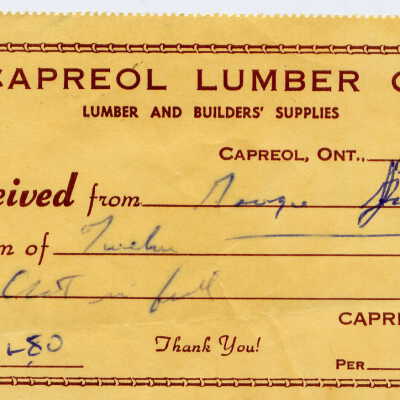 CAPREOL LUMBER C
LUMBER AND BUILDERS' SUPPLIES
CAPREOL, ONT.,
eived from George
m of Twelve
in full
CAPRE
80 Thank You!
PER